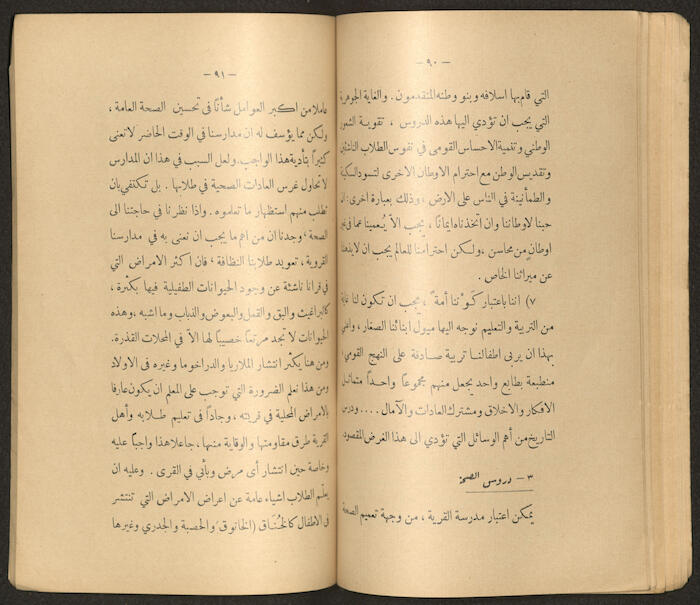 - ٩٠ -
التي قام بها اسلافه وبنو وطنه المتقدمون. والغاية الجوهرية
التي يجب ان تؤدي اليها هذه الدروس ، تقوية الشعور
الوطني وتنمية الاحساس القومى في نفوس الطلاب الناشئين
وتقديس الوطن مع احترام الاوطان الاخرى لتسود السكينة
والطمأنينة في الناس على الارض ، وذلك بعبارة اخرى : ان
حبنا لاوطاننا وان اتخذناه ايمانًا ، يجب الاّ يُعمينا عما في
اوطانٍ من محاسن ، ولكن احترامنا للعالم يجب ان لا
عن ميراثنا الخاص .
٧) اننا باعتبار كَوْننا أمةً ، يجب ان تكون لنا غاية
من التربية والتعليم نوجه اليها ميول ابنائنا الصغار ،
بهذا ان يربى اطفالنا تربية صادقة على النهج القومي
منطبعة بطابع واحد يجعل منهم مجموعاً واحداً متماثل
الافكار والاخلاق ومشترك العادات والآمال .... ودرس
التاريخ من أهم الوسائل التي تؤدي الى هذا الغرض المقصود.
٣ - دروس الصحة
يمكن اعتبار مدرسة القرية ، من وجهة تعميم الصحة
- ٩١ -
عاملا من اكبر العوامل شأنًا فى تحسين الصحة العامة ،
ولكن مما يؤسف له ان مدارسنا في الوقت الحاضر لا تعنى
كثيراً بتأدية هذا الواجب. ولعل السبب في هذا ان المدارس
لا تحاول غرس العادات الصحية في طلابها . بل تكتفي بان
تطلب منهم استظهار ما تعلموه . واذا نظرنا في حاجتنا الى
الصحة ، وجدنا ان من اهم ما يجب ان نعنى به في مدارسنا
القروية ، تعويد طلابنا النظافة ، فان اكثر الامراض التي
في قرانا ناشئة عن وجود الحيوانات الطفيلية فيها بكثرة ،
كالبراغيث والبق والقمل والبعوض والذباب وما اشبه ، وهذه
الحيوانات لا تجد مرتعاً خصيباً لها الاّ في المحلات القذرة.
ومن هنا يكثر انتشار الملاريا والدراخوما وغيره فى الاولاد
ومن هذا نعلم الضرورة التي توجب على المعلم ان يكون عارفا
بالامراض المحلية في قريته ، وجادّاً في تعليم طلابه وأهل
القرية طرق مقاومتها والوقاية منها ، جاعلا هذا واجبًا عليه
وخاصة حين انتشار أى مرض وبائي في القرى . وعليه ان
يعلّم الطلاب اشياء عامة عن اعراض الامراض التي تنتشر
في الاطفال كالخُناق (الخانوق) والحصبة والجدري وغيرها